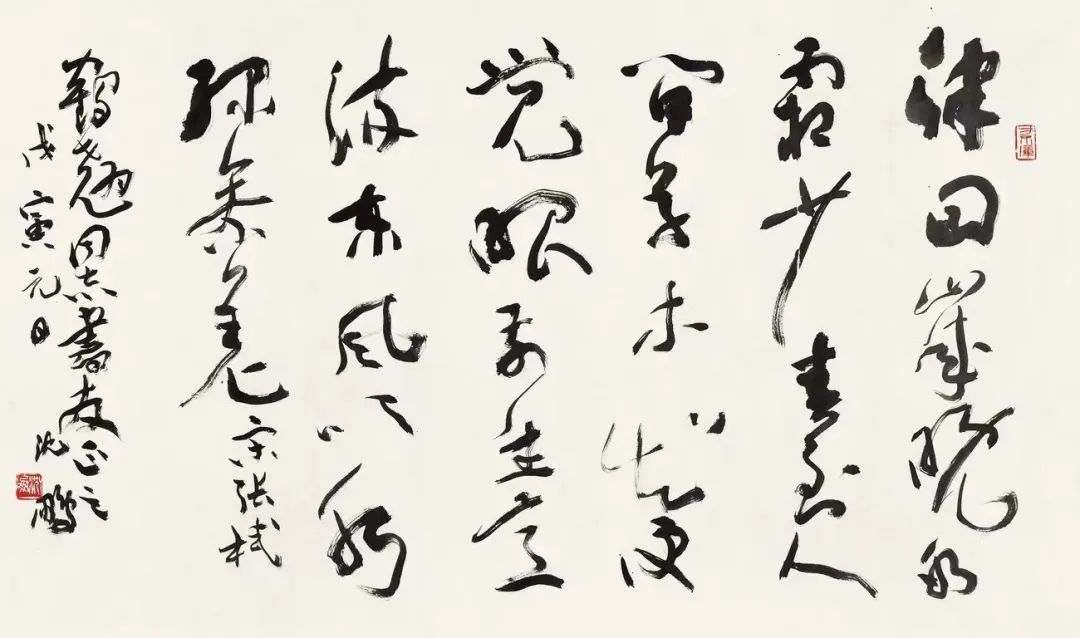 律回歲晚冰
霜少春到人
间草木知便
觉眼前生意
满东风吹水
绿参差 宋张栻
鹤翘同志书教正之
戊寅元日 沈鹏